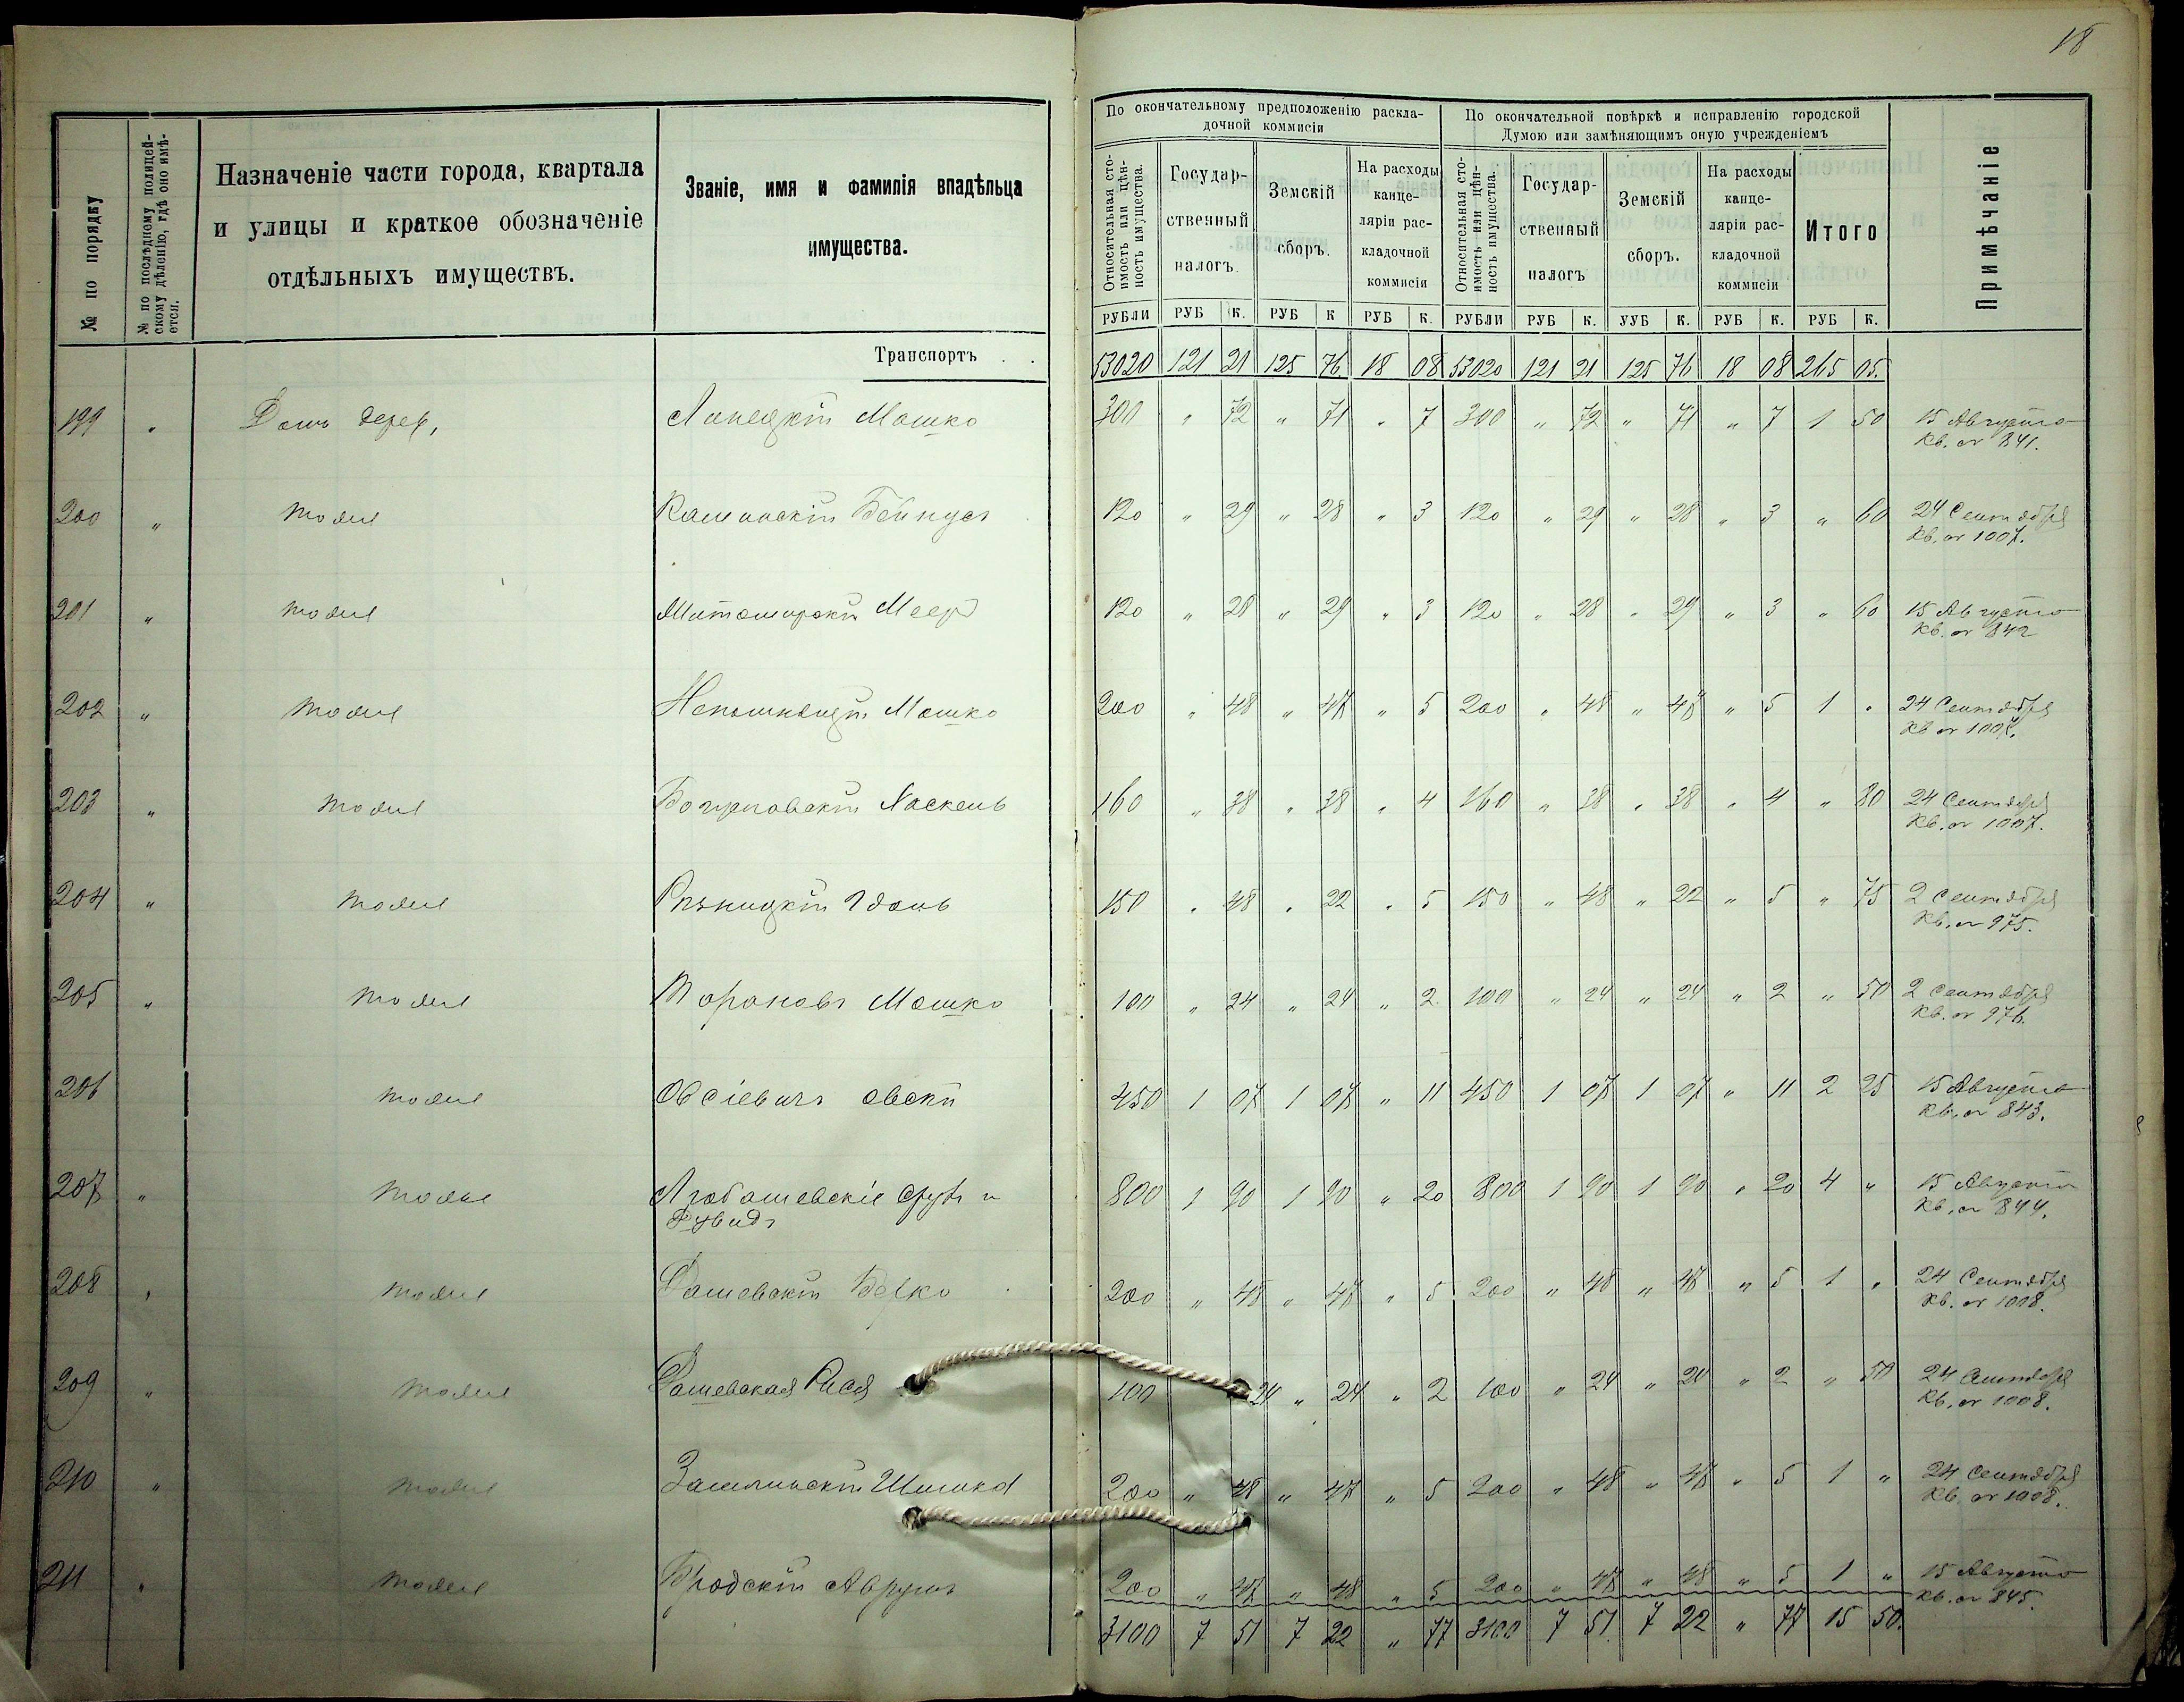 18
№ по порядку
№ по послѣдному полицейскому дѣленію, гдѣ оно имѣется.
Назначеніе части города, квартала
и улицы и краткое обозначеніе
отдѣльныхъ имуществъ.
Званіе, имя и фамилія владѣльца
имущества.
По окончательному предположенію раскладочной коммисіи
По окончательной повѣркѣ и исправленію городской
Думою или замѣняющимъ оную учрежденіемъ
Относительная стоимость или цѣнность имущества.
Государственный налогъ.
Земскій сборъ.
На расходы канцеляріи раскладочной коммисіи
Относительная стоимость или цѣнность имущества.
Государственный налогъ
Земскій сборъ.
На расходы канцеляріи раскладочной коммисіи
Итого
Примѣчаніе
РУБЛИ РУБ К. РУБ К РУБ К. РУБЛИ РУБ К. УУБ К. РУБ К. РУБ К.
Транспортъ . . 53020 121 21 125 76 18 08 53020 121 21 125 76 18 08 265 05.
199 " Домъ дерев, Мошко 300 " 72 " 71 " 7 300 " 72 " 71 " 7 1 50 15 Августа
Кв. 841.
200 " тоже 120 " 29 " 28 " 3 120 " 29 " 28 " 3 " 60 24 Сентября
Кв. 1007.
201 " тоже Меер 120 " 28 " 29 " 3 120 " 28 " 29 " 3 " 60 15 Августа
Кв. 842
202 " тоже Мошко 200 " 48 " 47 " 5 200 " 48 " 47 " 5 1 " 24 Сентября
Кв 1007.
203 " тоже 160 " 38 " 38 " 4 160 " 38 " 38 " 4 " 80 24 Сентября
Кв. 1007.
204 " тоже 150 " 48 " 22 " 5 150 " 48 " 22 " 5 " 75 2 Сентября
Кв. 975.
205 " тоже Мошко 100 " 24 " 24 " 2 100 " 24 " 24 " 2 " 50 2 Сентября
Кв. 976.
206 тоже 450 1 07 1 07 " 11 450 1 07 1 07 " 11 2 25 15 Августа
Кв. 843.
207 " тоже 800 1 90 1 90 " 20 800 1 90 1 90 " 20 4 " 15 Августа
Кв. 844.
208 " тоже Дашевскій Берко 200 " 48 " 47 " 5 200 " 48 " 47 " 5 1 " 24 Сентября
Кв. 1008.
209 " тоже Дашевская 100 24 " 24 " 2 100 " 24 " 24 " 2 " 50 24 Сентября
Кв. 1008.
210 " тоже 200 " 48 " 47 " 5 200 " 48 " 47 " 5 1 " 24 Сентября
Кв. 1008.
211 " тоже Бродскій Аврумъ 200 " 47 " 48 " 5 200 " 47 " 48 " 5 1 " 15 Августа
Кв. 845.
3100 7 51 7 22 " 77 3100 7 51 7 22 " 77 15 50.